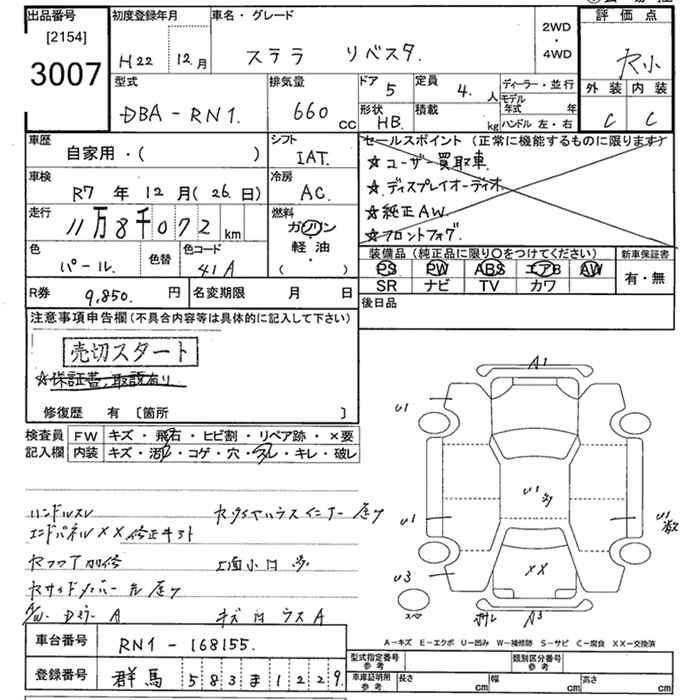 出品番号
[2154]
3007
初度登録年月
H22 12月
車名・グレード
ステラ リベスタ.
2WD
・
4WD
評価点
ヤ小
外装 内装
C C
型式
DBA-RN1.
排気量
660 cc
ドア 5
定員 4. 人
形状 HB.
積載 kg
ディーラー・並行
モデル年式 年
ハンドル 左・右
車歴
自家用・( )
シフト
IAT.
車検
R7 年 12月 (26.日)
冷房
AC.
走行
11万8千072 km
燃料
ガソリン
軽油・
( )
色
パール.
色替
色コード
41A
R券 9,850. 円
名変期限 月 日
セールスポイント (正常に機能するものに限ります)
☆ユーザー買取車.
☆ディスプレイオーディオ
☆純正AW.
☆フロントフォグ.
装備品 (純正品に限り〇をつけてください)
PS PW ABS エアB AW
SR ナビ TV カワ
新車保証書
有・無
後日品
注意事項申告欄 (不具合内容等は具体的に記入して下さい)
売切スタート
☆保証書、取説有り
修復歴 有 〔箇所 〕
検査員 FW キズ・飛石・ヒビ割・リペア跡・×要
記入欄 内装 キズ・汚れ・コゲ・穴・スレ・キレ・破レ
ハンドルスレ
エンドパネル××修正キスト
A1
U1
U1
U1
U3
××
スペア
A3
A-キズ E-エクボ U-凹み W-補修跡 S-サビ C-腐食 XX-交換済
車台番号 RN1-168155.
登録番号 群馬 583ま1229.
型式指定番号 参考
類別区分番号 参考
車庫証明用 参考
長さ cm 幅 cm 高さ cm